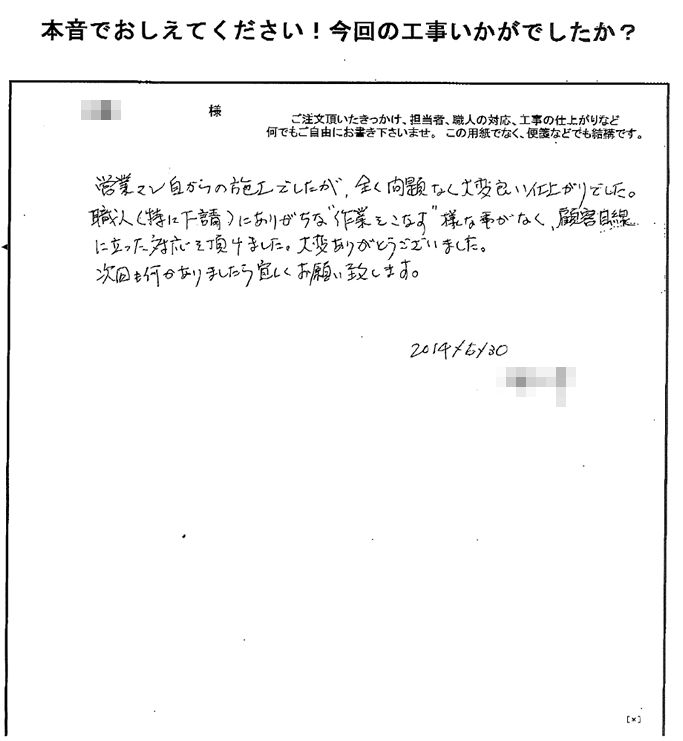 本音でおしえてください！今回の工事いかがでしたか？
様
ご注文頂いたきっかけ、担当者、職人の対応、工事の仕上がりなど
何でもご自由にお書き下さいませ。この用紙でなく、便箋などでも結構です。
営業マン自からの施工でしたが、全く問題なく大変良い仕上がりでした。
職人（特に下請）にありがちな“作業をこなす”様な事がなく、顧客目線
に立った対応を頂けました。大変ありがとうございました。
次回も何かありましたら宜しくお願い致します。
2014/5/30
[×]